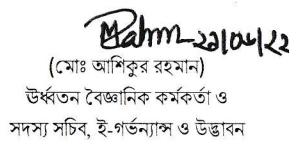 ২১/০৮/২২
(মোঃ আশিকুর রহমান)
ঊর্ধ্বতন বৈজ্ঞানিক কর্মকর্তা ও
সদস্য সচিব, ই-গর্ভন্যান্স ও উদ্ভাবন